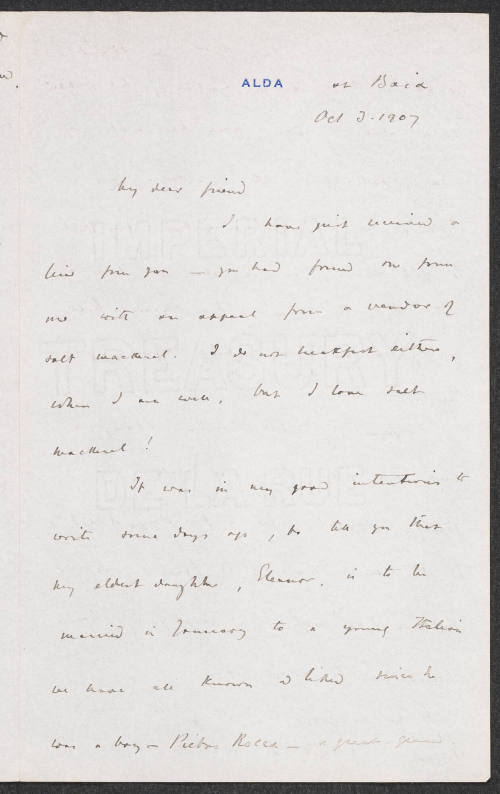 ALDA at Baia
Oct 3. 1907
My dear friend
I have just received a
line from you — you had found one from
me with an appeal from a vendor of
salt mackerel. I do not breakfast either,
when I am well, but I love salt
mackerel!
It was in my good intentions to
write some days ago, to tell you that
my eldest daughter, Eleanor, is to be
married in January to a young Italian
we have all known & liked since he
was a boy — Pietro Rocca — a great
IMPERIAL
TREASURY
DE LA RUE